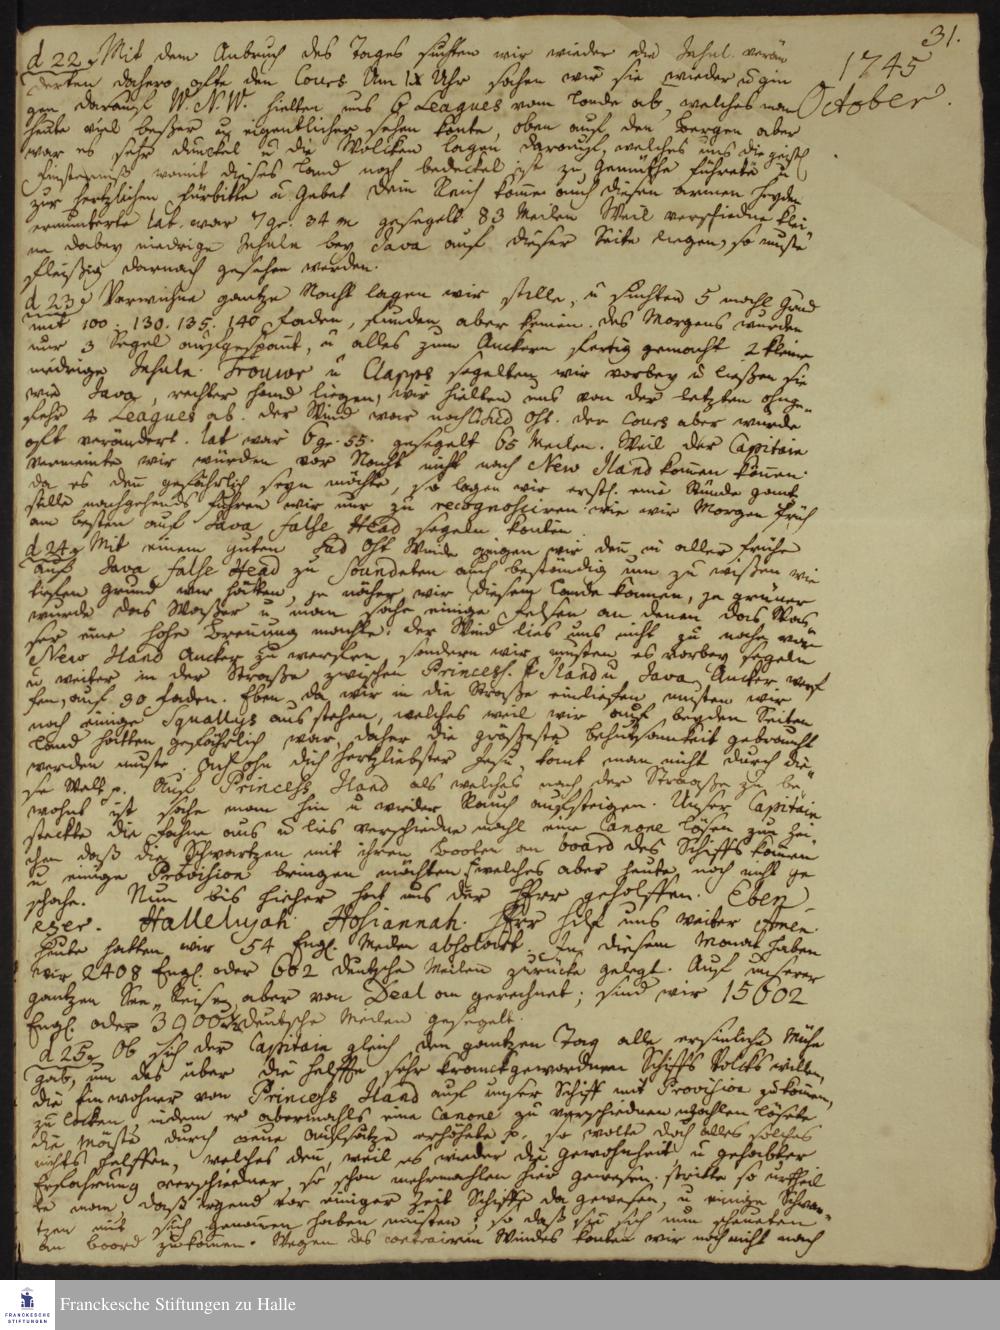 31.
1745
October.
d 22 Mit dem Anbruch des Tages suchten wir wieder die Insul verän
derten dahero offte den Cours Um 1x Uhr sahen wir sie wieder u gin
gen darauf W. N. W. hielten uns 6 Leagues vom Lande ab, welches man
heute viel beßer u eigentlicher sehen konte, oben auf den Bergen aber
war es sehr dunckel u die Wolcken lagen darauf, welches uns die geistl
Finsterniß womit dieses Land noch bedecket ist zu Gemüthe führete u
zur hertzlichen Fürbitte u Gebet Dein Reich komme auch diesen armen Heyden
ermunterte Lat. war 7 gr. 34 m gesegelt 83 Meilen Weil verschiedne klei
ne dabey niedrige Insuln bey Java auf dieser Seite liegen, so muste
fleißig darnach gesehen werden.
d 23 Verwichne gantze Nacht lagen wir stille, u suchten 5 mahl Grund
mit 100. 130. 135. 140 Faden, funden aber keinen. des Morgens wurden
nur 3 Segel ausgespant, u alles zum Anckern fertig gemacht 2 kleine
niedrige Insuln Trouwe u Clapps segelten wir vorbey u ließen sie
wie Java, rechter Hand liegen, wir hielten uns von der letzten ohnge-
fehr 4 Leagues ab. der Wind war noch Süd Ost. der Cours aber wurde
oft verändert. Lat war 6 gr. 55. gesegelt 65 Meilen. Weil der Capitain
vermeinte wir würden vor Nacht nicht nach New Iland kommen können
da es den gefährlich seyn möchte, so lagen wir erstl. eine Stunde gantz
stille nachgehends fuhren wir nur zu recognosciren wie wir Morgen früh
am besten auf Java false Head segeln konten
d 24 Mit einem guten Süd Ost Winde gingen wir den in aller Frühe
auf Java false Head zu soundeten auch beständig um zu wißen wie
tiefen Grund wir hätten, je näher wir diesem Lande kamen, je grüner
wurde das Waßer u man sahe einige Felsen an denen das Was
ser eine hohe Brennung machte. der Wind lies uns nicht zu nahe von
New Iland Ancker zu werffen, sondern wir musten es vorbey segeln
u weiter in der Straße zwischen Princess Iland u Java Ancker werf
fen, auf 90 Faden. Eben, da wir in die Straße einliefen musten wir
noch einige Squallys ausstehen, welches weil wir auf beyden Seiten
Land hatten gefährlich war, daher die größeste Behutsamkeit gebraucht
werden muste. Ach ohn dich hertzliebster Jesu, komt man nicht durch die-
se Welt p. Auf Princess Iland als welches nach der Straaße zu be-
wohnt ist sahe man hin u wieder Rauch aufsteigen. Unser Capitain
steckte die Fahne aus u lies verschiedne mahl eine Canone lösen zum Zei-
chen daß die Schwartzen mit ihren Booten an board des Schiffs kommen
u einige Provision bringen möchten welches aber heute noch nicht ge
schahe. Nun bis hieher hat uns der HErr geholffen. Eben
ezer. Hallelujah Hosiannah. HErr hilf uns weiter Amen.
Heute hatten wir 54 Engl. Meilen absolvirt. In diesem Monat haben
wir 2408 Engl. oder 602 deutsche Meilen zurücke gelegt. Auf unserer
gantzen See-Reise aber von Deal an gerechnet, sind wir 15602
Engl. oder 3900 1/2 deutsche Meilen gesegelt.
d 25 Ob sich der Capitain gleich den gantzen Tag alle ersinliche Mühe
gab, um des über die helffte sehr kranckgewordnen Schiffs Volcks willen,
die Einwohner von Princess Iland auf unser Schiff mit Provision zu kommen,
zu locken, indem er abermahls eine Canone zu verschiednen mahlen lösete
die durch neue Aufsätze erhöhete p. so wolte doch alles solches
nichts helffen, welches den, weil es wieder die gewohnheit u gehabter
Erfahrung verschiedner, so schon mehrmahlen hier gewesen, stritte so urtheil
te man, daß irgend vor einiger Zeit Schiffe da gewesen, u einige Schwar-
tzen mit sich genommen haben müsten, so daß sie sich nun scheueten
an boord zu kommen. Wegen des contrairen Windes konten wir noch nicht nach
Franckesche Stiftungen zu Halle
FRANCKESCHE
STIFTUNGEN